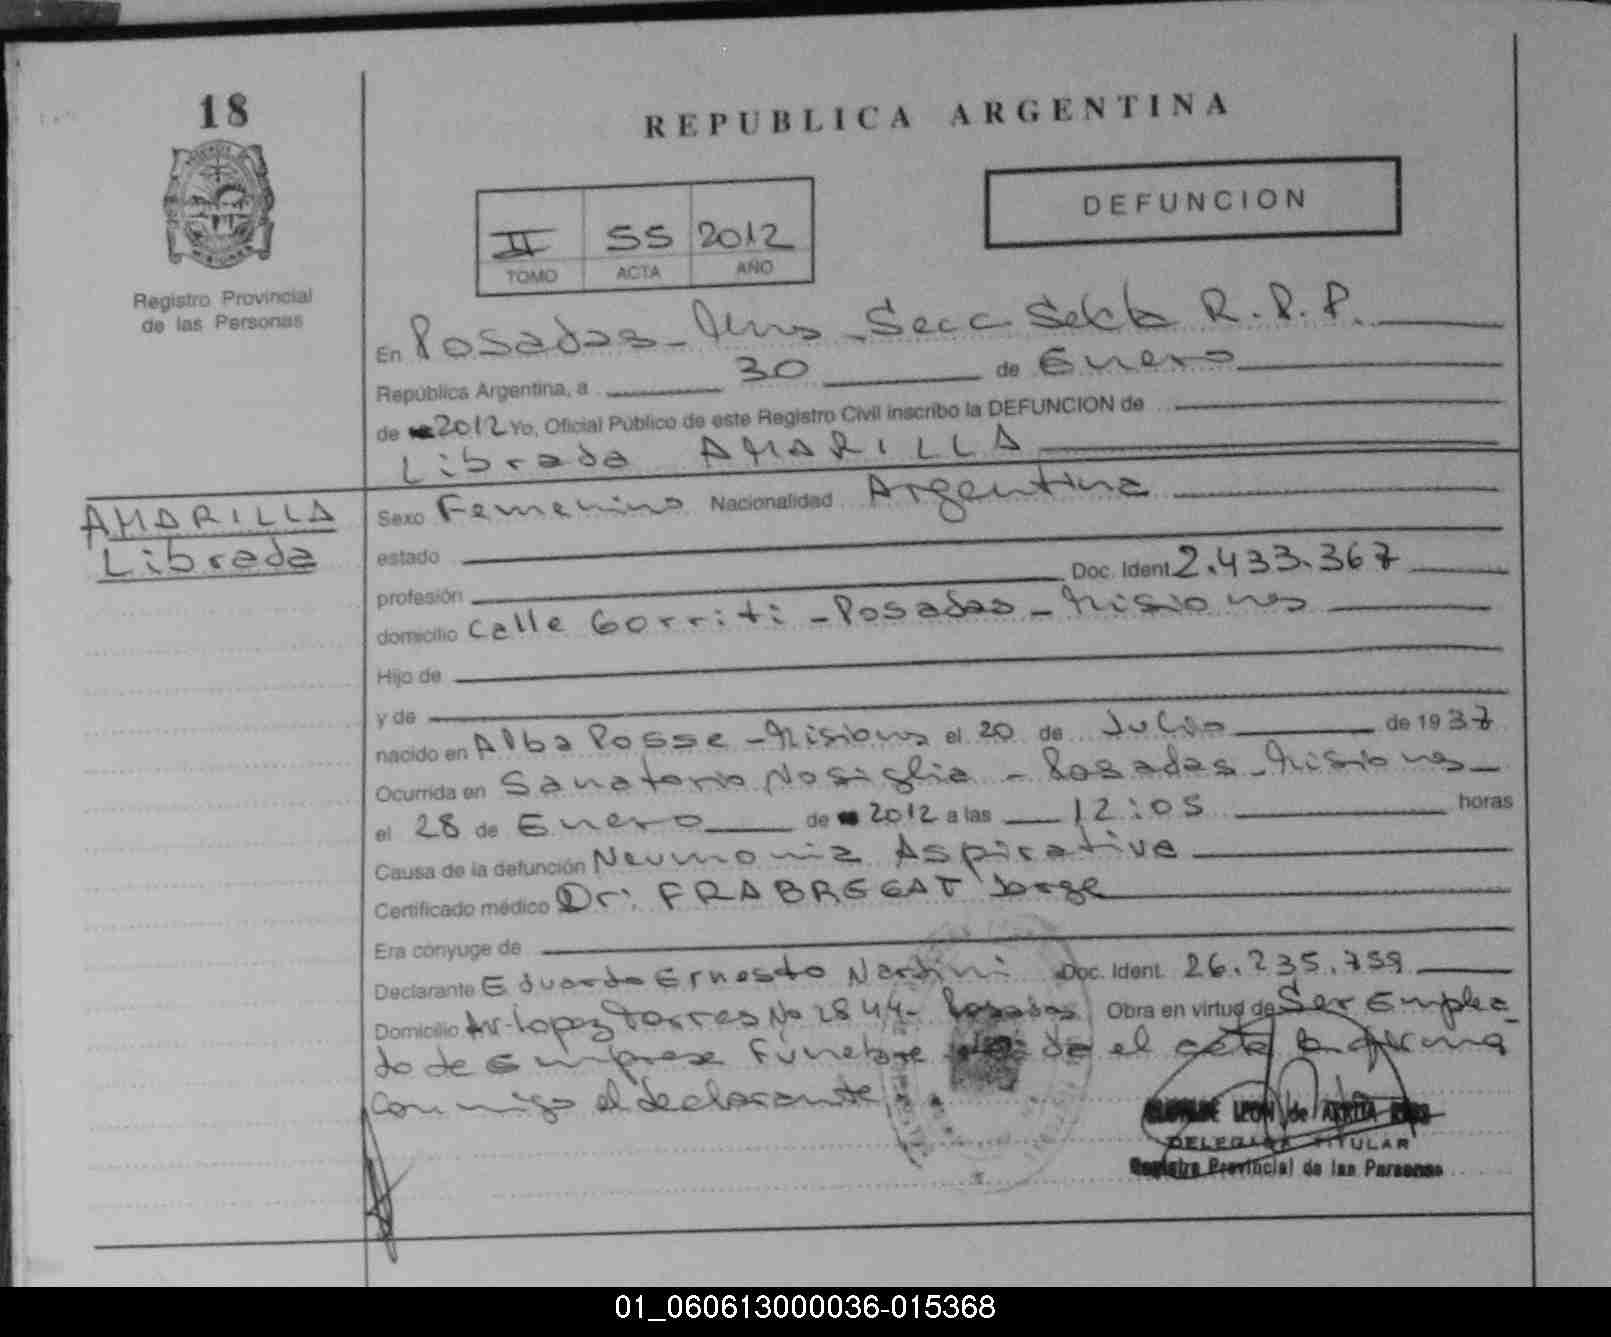 18
REPUBLICA ARGENTINA
DEFUNCION
II 55 2012
TOMO ACTA AÑO
Registro Provincial
de las Personas
En Posadas - Mnes - Secc. Sexta R.P.P.
República Argentina, a 30 de Enero
de 2012 Yo, Oficial Público de este Registro Civil inscribo la DEFUNCION de
Librada AMARILLA
AMARILLA
Librada
Sexo Femenino Nacionalidad Argentina
estado
profesión Doc. Ident. 2.433.367
domicilio Calle Gorriti - Posadas - Misiones
Hijo de
y de
nacido en Alba Posse - Misiones el 20 de Julio de 1937
Ocurrida en Sanatorio Nosiglia - Posadas - Misiones
el 28 de Enero de 2012 a las 12:05 horas
Causa de la defunción Neumonia Aspirativa
Certificado médico Dr: FRABREGAT Jorge
Era cónyuge de
Declarante Eduardo Ernesto Nardini Doc. Ident. 26.235.759
Domicilio Av. Lopez Torres No 2844 - Posadas Obra en virtud de Ser Emplea-
do de Empresa Funebre el acta la firma
conmigo el declarante
LEON de
DELEGADA TITULAR
Registro Provincial de las Personas
01_060613000036-015368